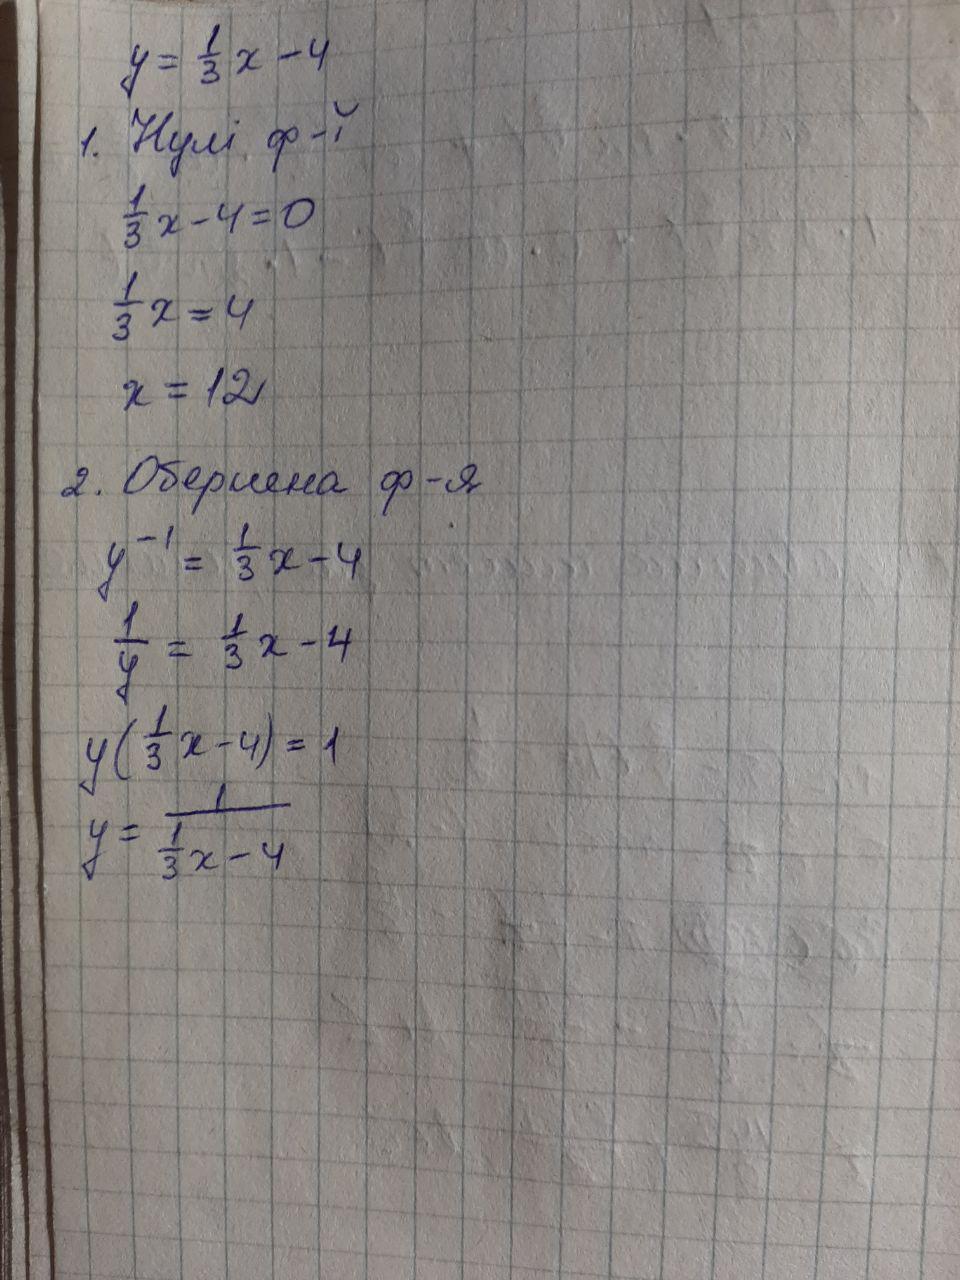 y = 1/3 x - 4
1. Нулі ф-ї
1/3 x - 4 = 0
1/3 x = 4
x = 12
2. Обернена ф-я
y^-1 = 1/3 x - 4
1/y = 1/3 x - 4
y(1/3 x - 4) = 1
y = 1/(1/3 x - 4)